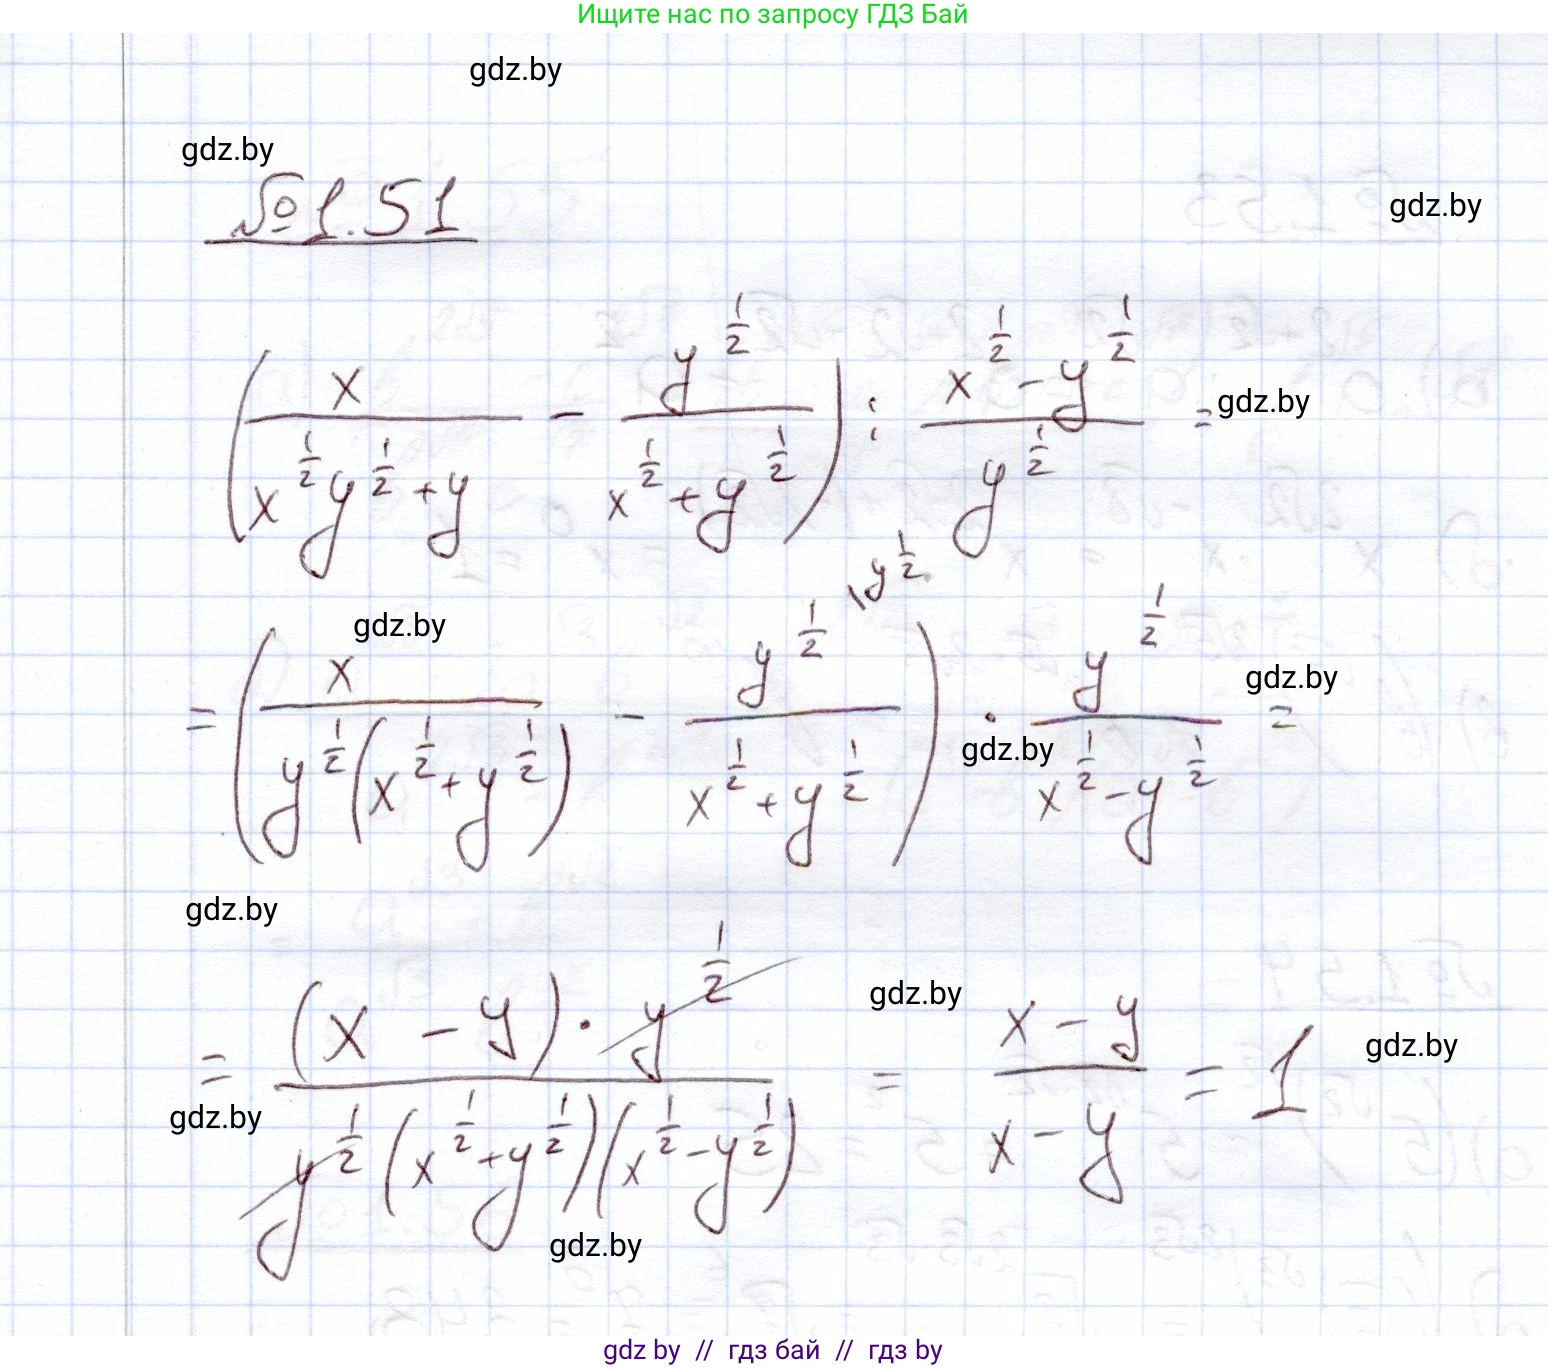 Ищите нас по запросу ГДЗ Бай
gdz.by
gdz.by
gdz.by
№1.51
(x/(x^(1/2)y^(1/2)+y) - y^(1/2)/(x^(1/2)+y^(1/2))) : (x^(1/2)-y^(1/2))/y^(1/2) =
gdz.by
gdz.by
= (x/(y^(1/2)(x^(1/2)+y^(1/2))) - y^(1/2)/(x^(1/2)+y^(1/2)) \y^(1/2)) · y^(1/2)/(x^(1/2)-y^(1/2)) =
gdz.by
gdz.by
gdz.by
= ((x - y) · y^(1/2))/(y^(1/2)(x^(1/2)+y^(1/2))(x^(1/2)-y^(1/2))) = (x - y)/(x - y) = 1
gdz.by
gdz.by
gdz.by
gdz.by
gdz by // гдз бай // гдз by